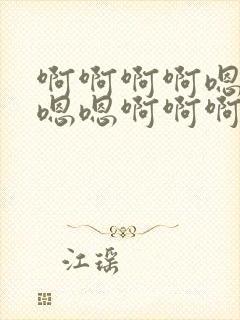 啊啊啊啊嗯
嗯嗯啊啊啊
江瑶